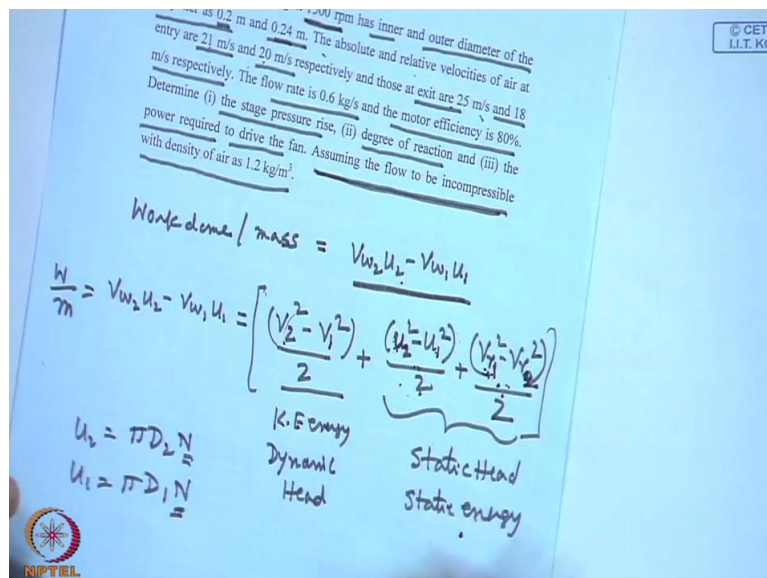 1500 rpm has inner and outer diameter of the
as 0.2 m and 0.24 m. The absolute and relative velocities of air at
entry are 21 m/s and 20 m/s respectively and those at exit are 25 m/s and 18
m/s respectively. The flow rate is 0.6 kg/s and the motor efficiency is 80%.
Determine (i) the stage pressure rise, (ii) degree of reaction and (iii) the
power required to drive the fan. Assuming the flow to be incompressible
with density of air as 1.2 kg/m³.
© CET
I.I.T. KG
Work done / mass = Vw₂U₂ - Vw₁U₁
W/m = Vw₂U₂ - Vw₁U₁ = [(V₂² - V₁²)/2 + (U₂² - U₁²)/2 + (Vr₁² - Vr₂²)/2]
K.E energy
Dynamic
Head
Static Head
Static energy
U₂ = πD₂N
U₁ = πD₁N
NPTEL